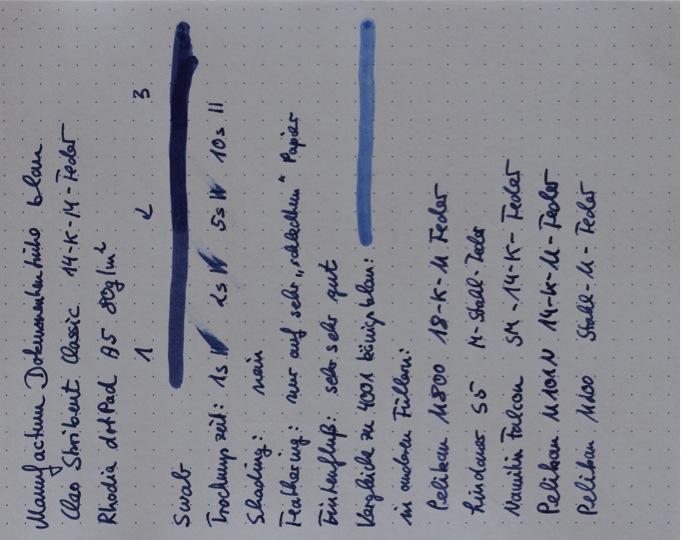 Manufactum Dokumententinte blau
Cleo Skribent Classic 14-K-M-Feder
Rhodia dotPad A5 80g/m²
1 2 3
Swab
Trockungszeit: 1s 2s 5s 10s
Shading: nein
Feathering: nur auf sehr „schlechtem“ Papier
Tintenfluß: sehr sehr gut
Vergleich zu 4001 königsblau:
in anderen Füllern:
Pelikan M800 18-K-M Feder
Lindauer S5 M-Stahl-Feder
Namiki Falcon SM-14-K-Feder
Pelikan M101N 14-K-M-Feder
Pelikan M100 Stahl-M-Feder